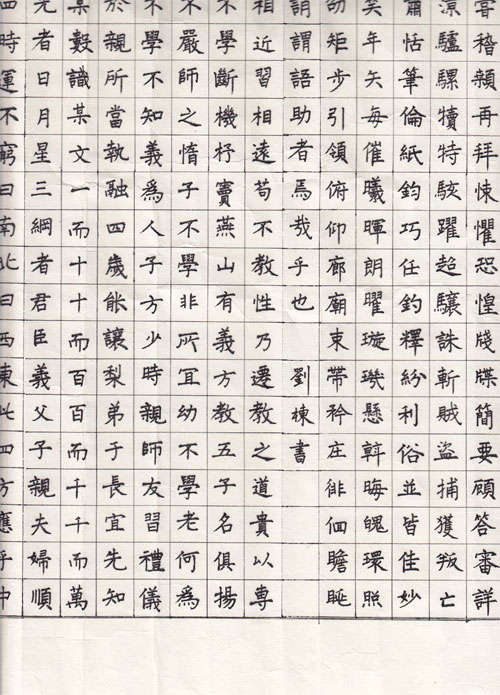 嘗稽顙再拜悚懼恐惶牋牒簡要顧答審詳
涼驢騾犢特駭躍超驤誅斬賊盜捕獲叛亡
嘯恬筆倫紙鈞巧任釣釋紛利俗並皆佳妙
笑年矢每催曦暉朗曜璇璣懸斡晦魄環照
劭矩步引領俯仰廊廟束帶矜庄徘徊瞻眺
誚謂語助者焉哉乎也 劉棟書
相近習相遠苟不教性乃遷教之道貴以專
不學斷機杼竇燕山有義方教五子名俱揚
不嚴師之惰子不學非所宜幼不學老何為
不學不知義為人子方少時親師友習禮儀
於親所當執融四歲能讓梨弟于長宜先知
某數識某文一而十十而百百而千千而萬
光者日月星三綱者君臣義父子親夫婦順
四時運不窮曰南北曰西東此四方應乎中